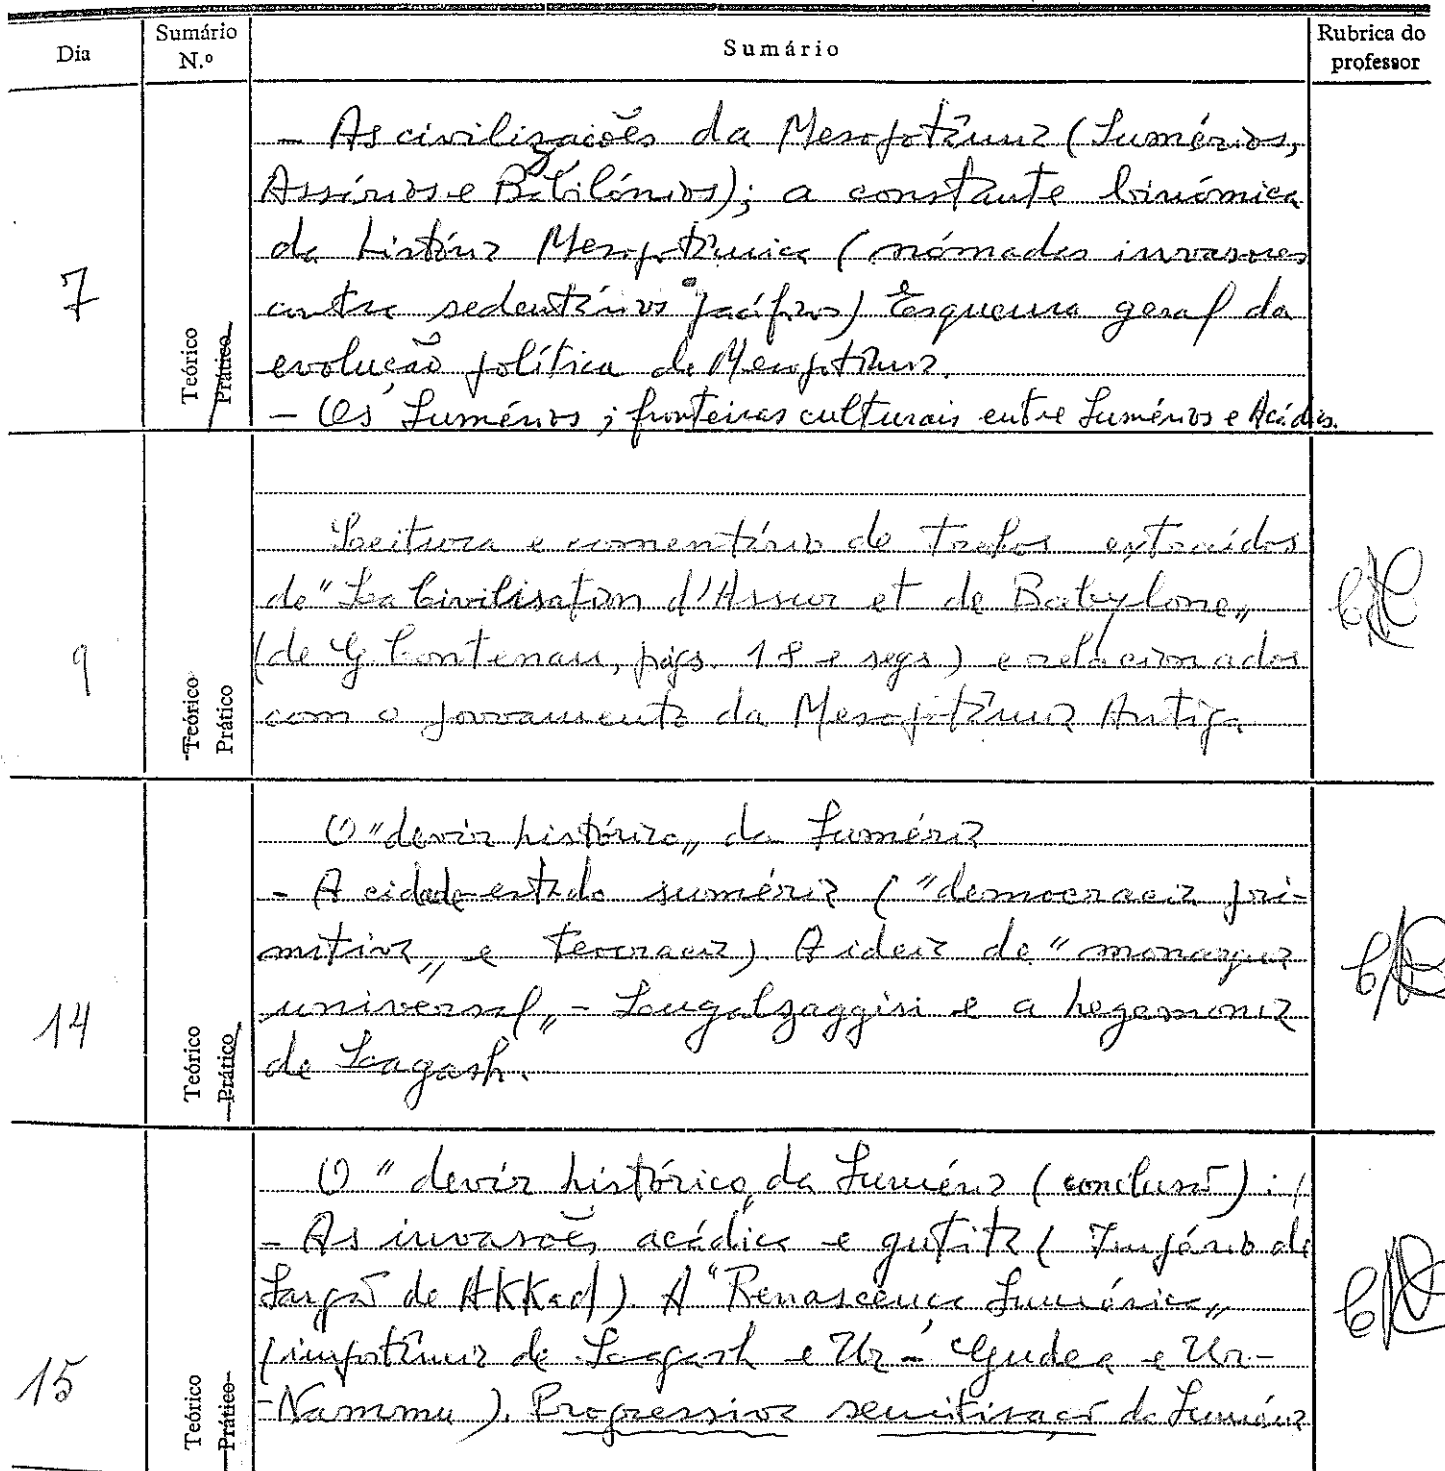 Dia Sumário N.º Sumário Rubrica do professor
7
Teórico
Prático
- As civilizações da Mesopotâmia (Sumérios,
Assírios e Babilónios); a constante binómica
da história Mesopotâmica (nómadas invasores
contra sedentários pacíficos) Esquema geral da
evolução política da Mesopotâmia.
- Os Sumérios; fronteiras culturais entre Sumérios e Acádios.
9
Teórico
Prático
Leitura e comentário de trechos extraídos
de "La Civilisation d'Assur et de Babylone"
(de G. Contenau, págs. 18 e segs) e relacionados
com o povoamento da Mesopotâmia Antiga
14
Teórico
Prático
O "devir histórico" da Suméria
- A cidade-estado suméria ("democracia pri-
mitiva" e teocracia). A ideia de "monarquia
universal" - Lougalzaggisi e a hegemonia
de Lagash.
15
Teórico
Prático
O "devir histórico" da Suméria (conclusão):
- As invasões acádica e gutita (Império de
Sargão de AKKad). A "Renascença Sumérica"
(importância de Lagash e Ur - Gudea e Ur-
-Nammu). Progressiva semitização da Suméria